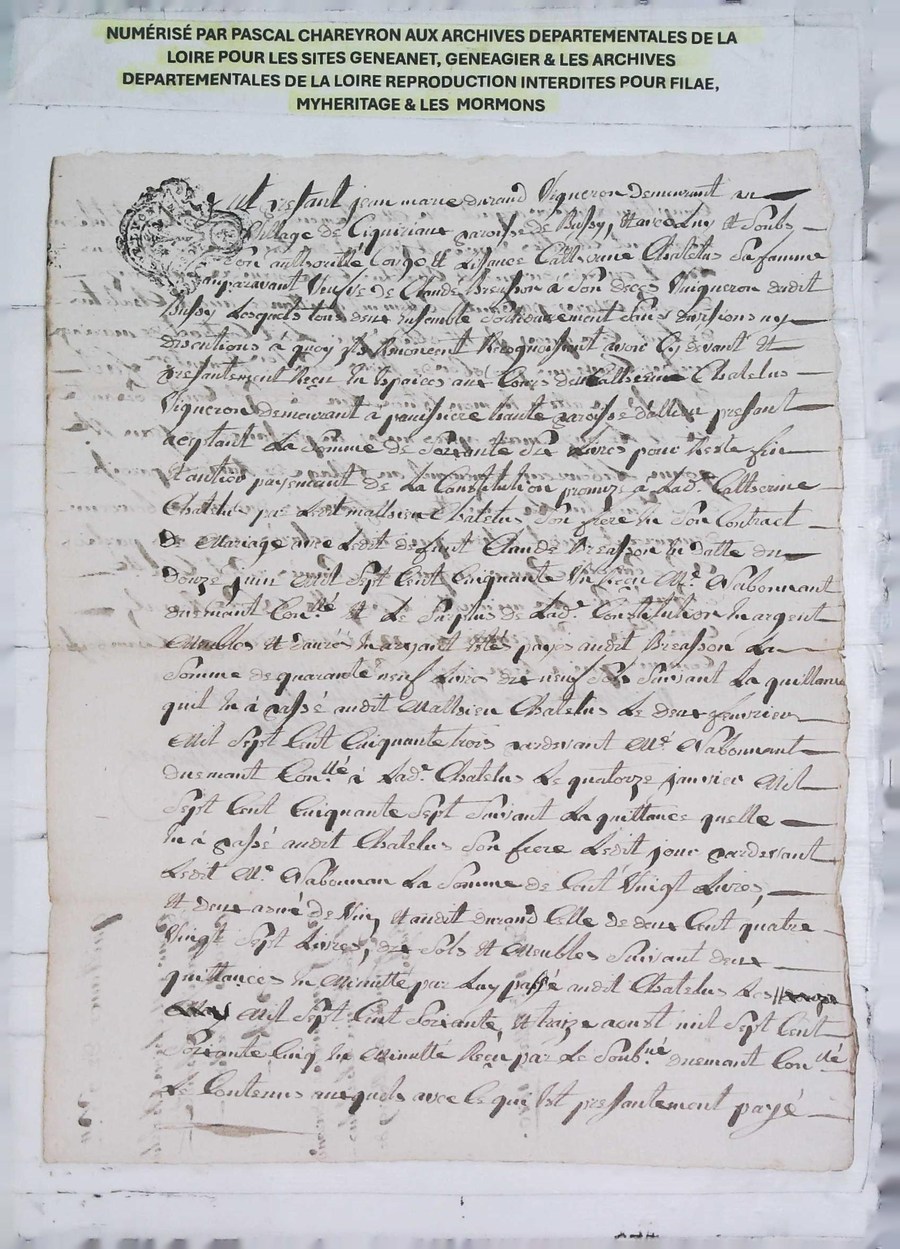 NUMÉRISÉ PAR PASCAL CHAREYRON AUX ARCHIVES DEPARTEMENTALES DE LA
LOIRE POUR LES SITES GENEANET, GENEAGIER & LES ARCHIVES
DEPARTEMENTALES DE LA LOIRE REPRODUCTION INTERDITES POUR FILAE,
MYHERITAGE & LES MORMONS
jean marie durand Vigneron demeurant au
Village de paroisse de Bussy, et avec luy et Soubs
Son authorité Congé et Lisance Catherine Chatelus Sa femme
auparavant Veufve de Claude Breasson à Son deces Vuigneron dudit
Bussy Lesquels tous deux ensemble Sollidairement Sans divisions ny
discutions à quoy ils Renoncent avoir Cy devant Et
presantement Reçu En Espaices aux Cours de Chatelus
Vigneron demeurant à paroisse presant
aceptant La Somme de Soixante dix Livres pour Reste fin
Et antier payemant de La Constitution promize a Lad.e Catherine
Chatelus par Ledit mathieu Chatelus Son frere En Son Contract
De Mariage avec Ledit defunt Claude Breasson En datte du
Douze juin Mil Sept Cent Cinquante Un Reçu Me. Nabonnant
duemant Con.llé Et Le Surplus de Lad.e Constitution En argent
Meubles Et danrés En ayant Etés payes audit Breasson La
Somme de quarante neuf Livres dix neuf Sols Suivant La quittance
quil En à passé audit Mathieu Chatelus Le deux fevrier
Mil Sept Cent Cinquante trois pardevant Me. Nabonnant
duemant Con.llé à Lad.e Chatelus Le quatorze janvier Mil
Sept Cent Cinquante Sept Suivant La quittance quelle
En à passé audit Chatelus Son frere Ledit jour pardevant
Ledit Me. Nabonnan La Somme de Cent Vingt Livres,
Et deux asné de Vin, Et audit durand Celle de deux Cent quatre
Vingt Sept Livres, dix Sols Et Meubles Suivant deux
quittances En Minutté par Luy passé audit Chatelus Les
May Mil Sept Cent Soixante, Et traize aoust mil Sept Cent
Soixante Cinq En Minutté Reçu par Le Soub.né duemant Con.llé
Le Contenus auxquels avec Ce qui Est presantement payé